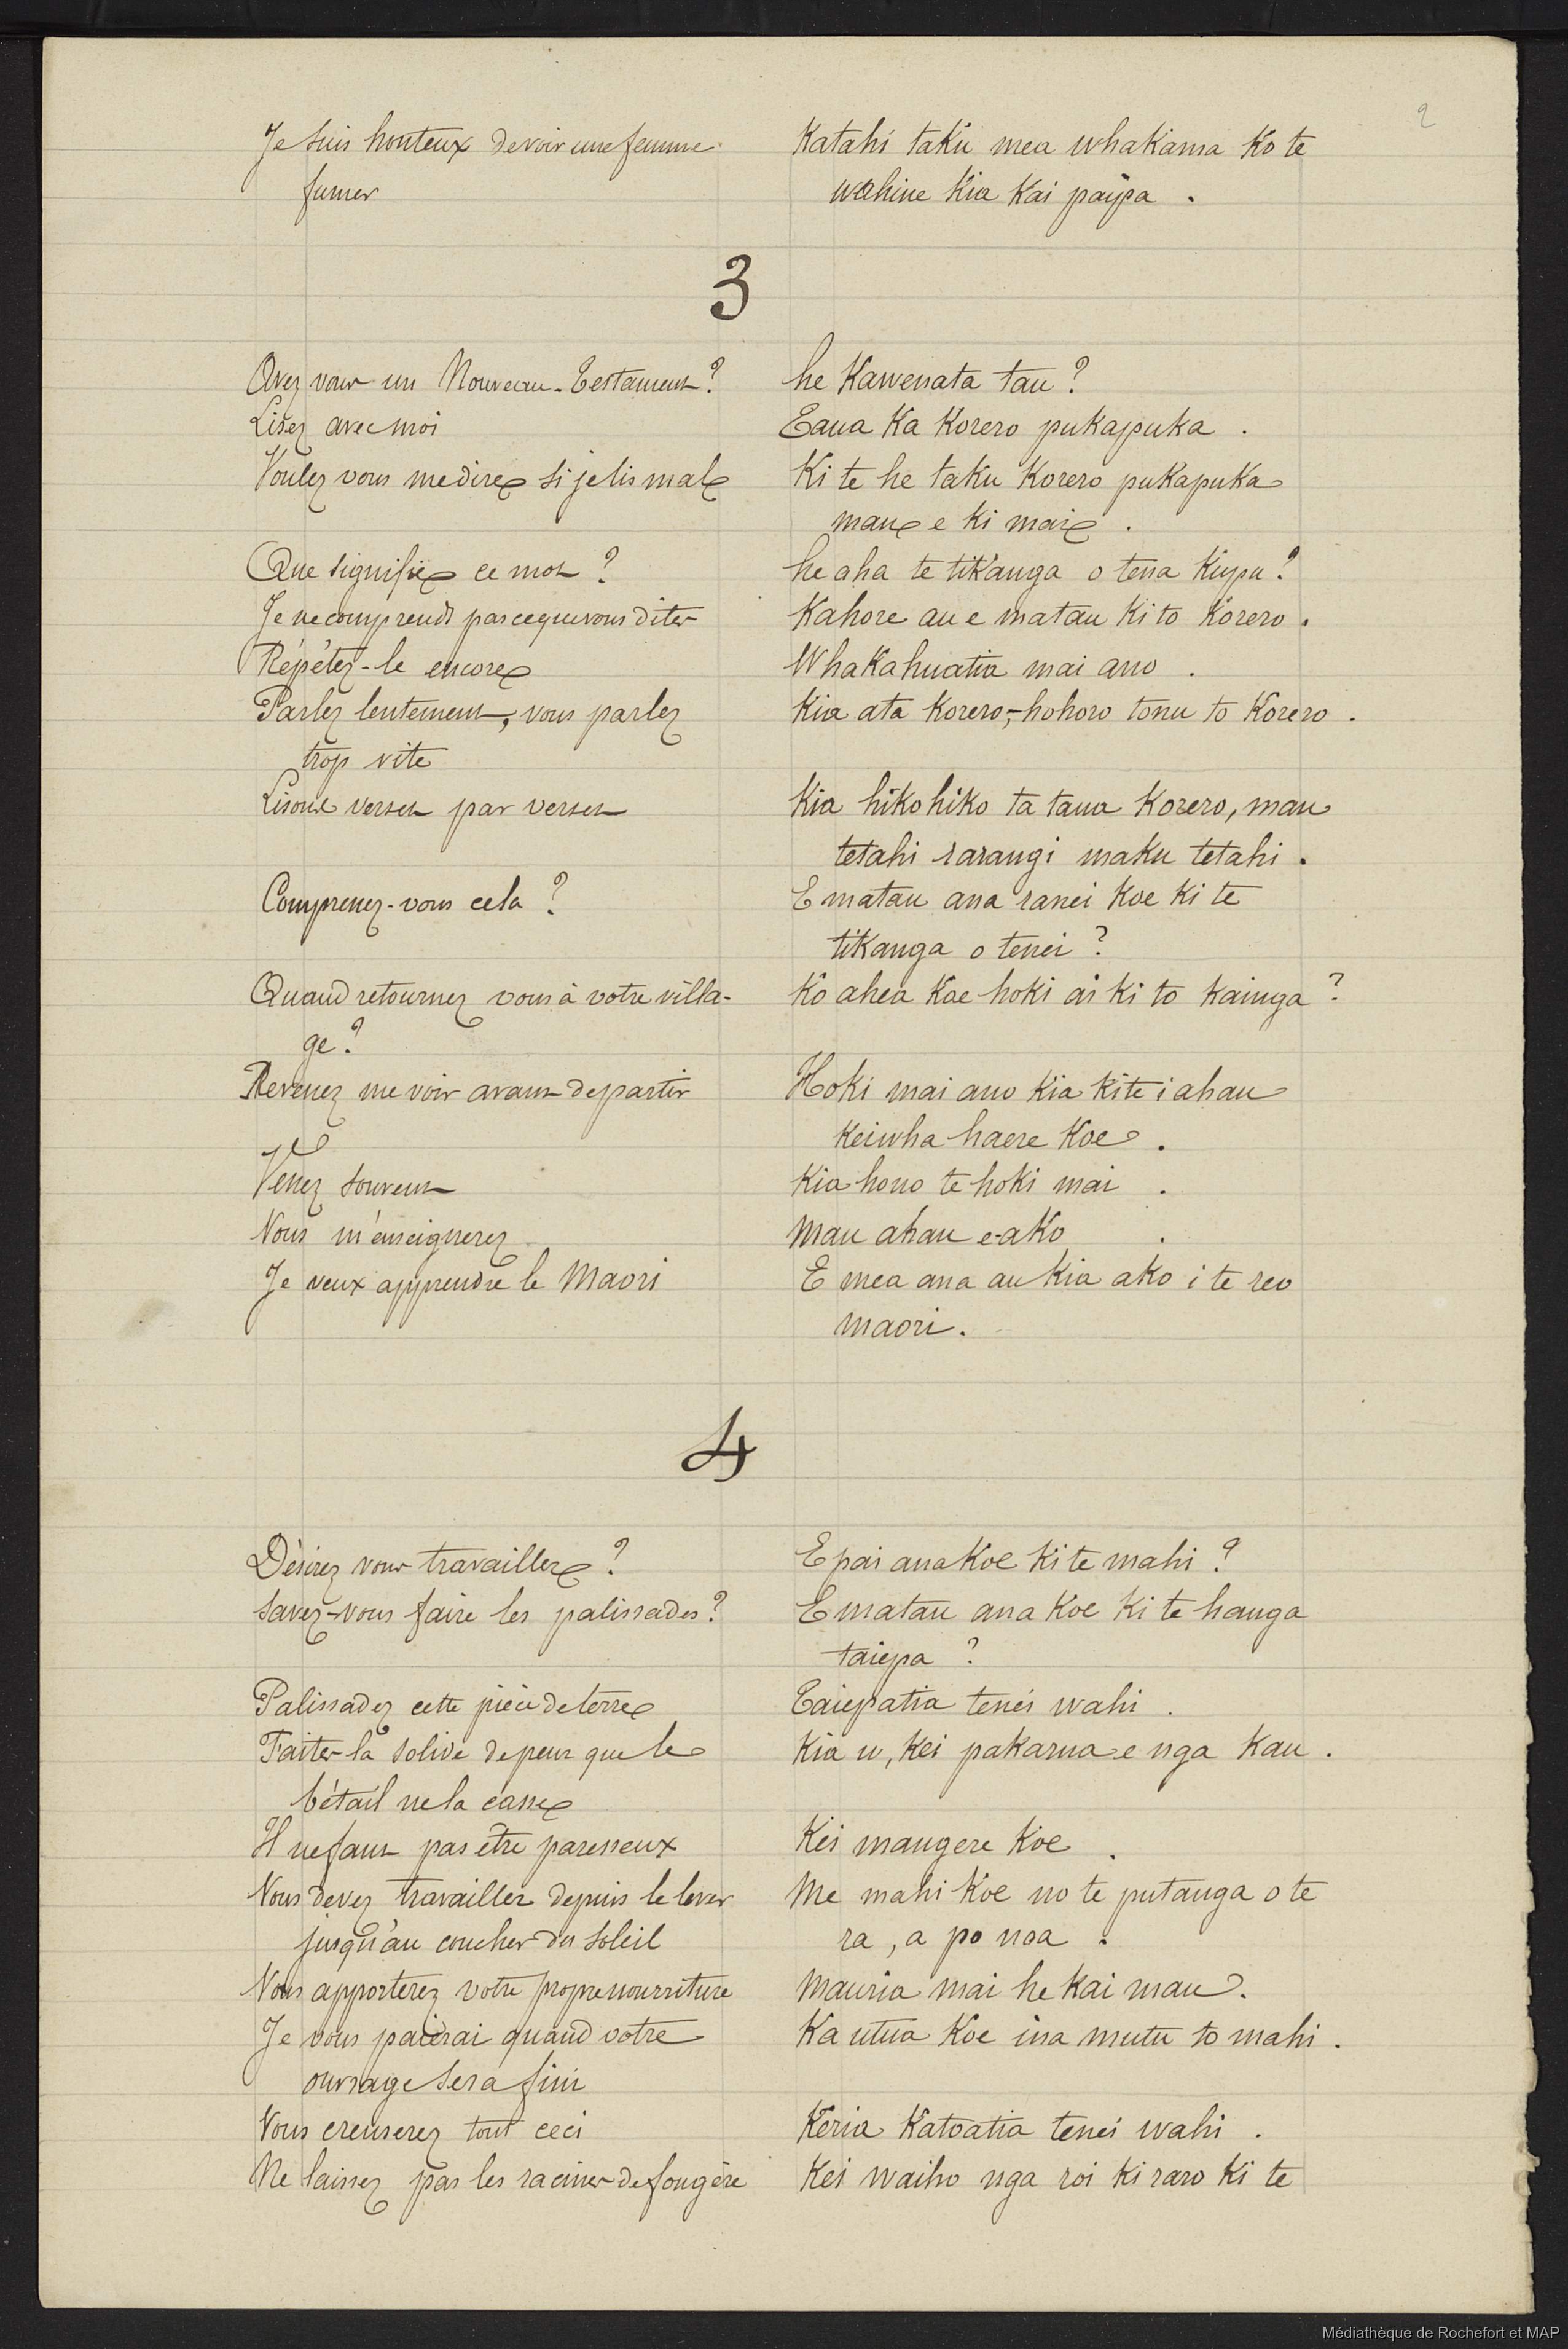 2
Je suis honteux de voir une femme
fumer
Katahi taku mea whakama ko te
wahine kia kai paipa .
3
Avez vous un Nouveau-Testament ?
he Kawenata tau ?
Lisez avec moi
Taua ka korero pukapuka .
Voulez vous me dire si je lis mal
Ki te he taku korero pukapuka
mau e ki mai .
Que signifie ce mot ?
he aha te tikanga o tena kupu ?
Je ne comprends pas ce que vous dites
Kahore au e matau ki to korero .
Répétez-le encore
Whakahuatia mai ano .
Parlez lentement, vous parlez
trop vite
Kia ata korero,-hohoro tonu to korero .
Lisons verset par verset
Kia hikohiko ta taua korero, mau
tetahi rarangi maku tetahi .
Comprenez-vous cela ?
E matau ana ranei koe ki te
tikanga o tenei ?
Quand retournez vous à votre villa-
ge ?
Ko ahea koe hoki ai ki to kainga ?
Revenez me voir avant de partir
Hoki mai ano kia kite i ahau
keiwha haere koe .
Venez souvent
Kia hono te hoki mai .
Vous m'enseignerez
Mau ahau e-ako .
Je veux apprendre le Maori
E mea ana au kia ako i te reo
maori .
4
Désirez vous travailler ?
E pai ana koe ki te mahi ?
Savez-vous faire les palissades ?
E matau ana koe ki te hanga
taiepa ?
Palissadez cette pièce de terre
Taiepatia tenei wahi .
Faites-la solide de peur que le
bétail ne la casse
Kia u, kei pakarua e nga kau .
Il ne faut pas être paresseux
Kei mangere koe .
Vous devez travailler depuis le lever
jusqu'au coucher du soleil
Me mahi koe no te putanga o te
ra , a po noa .
Vous apporterez votre propre nourriture
Mauria mai he kai mau .
Je vous paierai quand votre
ouvrage sera fini
Ka utua koe ina mutu to mahi .
Vous creuserez tout ceci
Keria katoatia tenei wahi .
Ne laissez pas les racines de fougère
Kei waiho nga roi ki raro ki te
Médiathèque de Rochefort et MAP